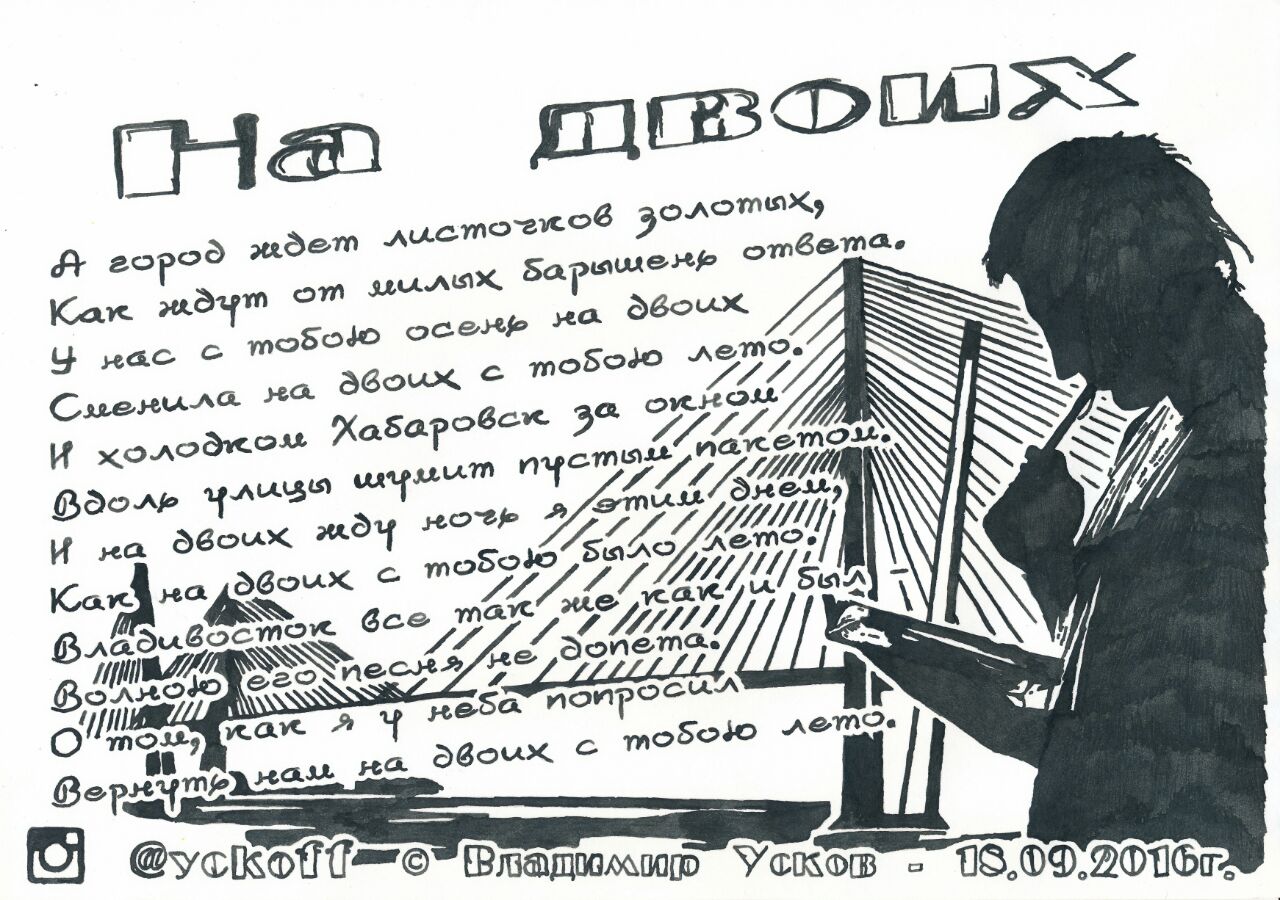 На двоих
А город ждет листочков золотых,
Как ждут от милых барышень ответа.
У нас с тобою осень на двоих
Сменила на двоих с тобою лето.
И холодком Хабаровск за окном
Вдоль улицы шумит пустым пакетом.
И на двоих жду ночь я этим днем,
Как на двоих с тобою было лето.
Владивосток все так же как и был -
Волною его песня не допета.
О том, как я у неба попросил
Вернуть нам на двоих с тобою лето.
@yckoff © Владимир Усков - 18.09.2016г.